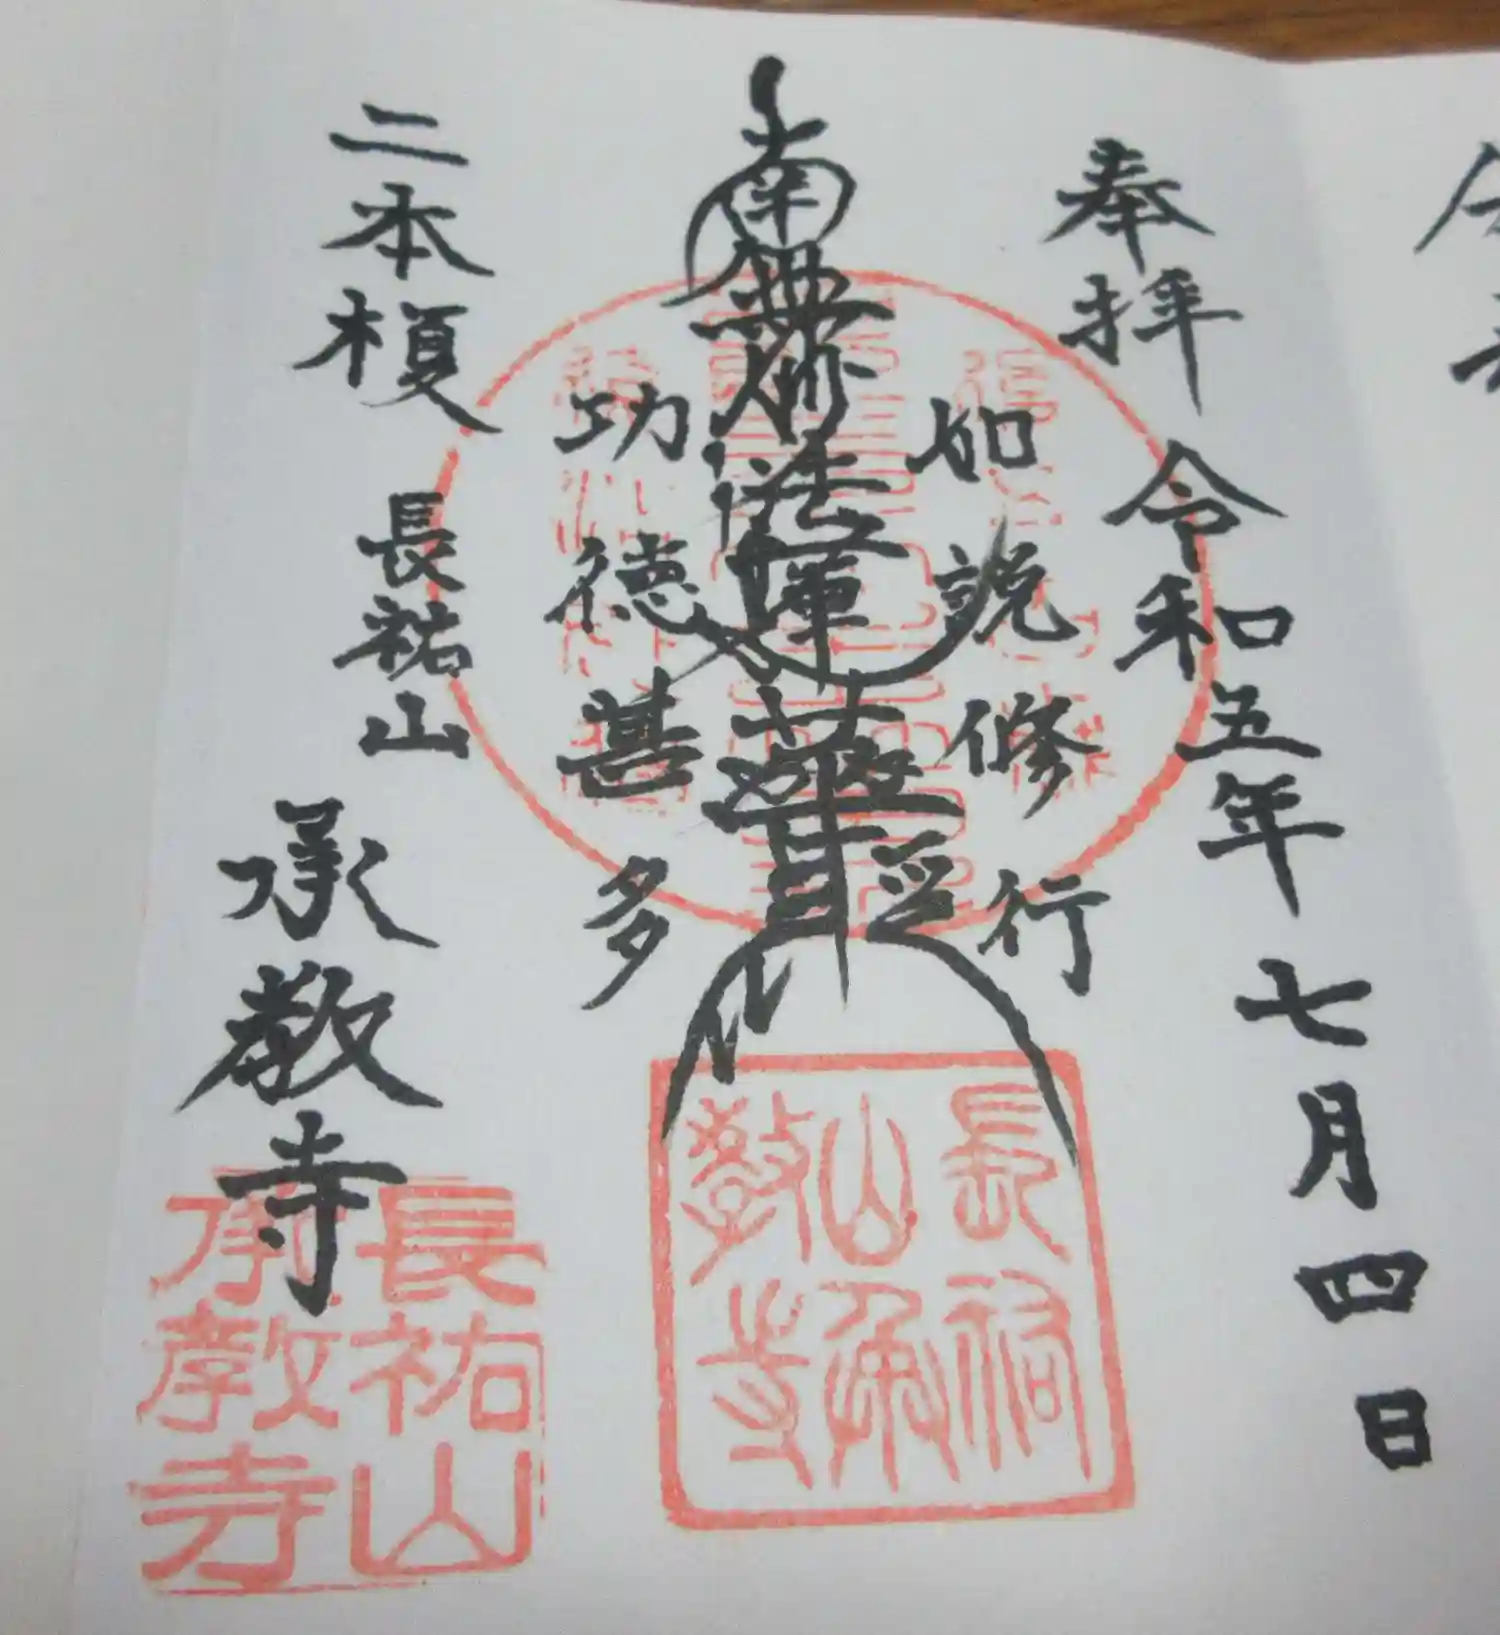 奉拝
令和五年七月四日
如説修行
南無妙法蓮華経
功徳甚多
二本榎
長祐山
承教寺
長祐山承教寺
長祐山承教寺